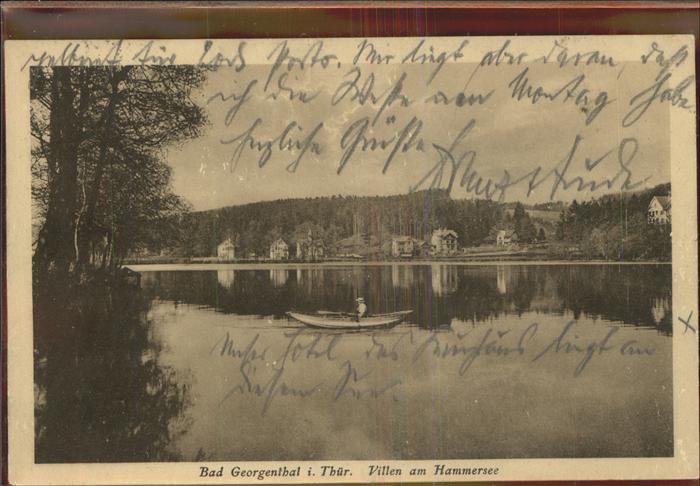 selbst für das Porto. Mir liegt aber daran, daß
ich die Weste am Montag habe
herzliche Grüße
Unser Hotel, das Kurhaus liegt an
diesem See.
Bad Georgenthal i. Thür. Villen am Hammersee